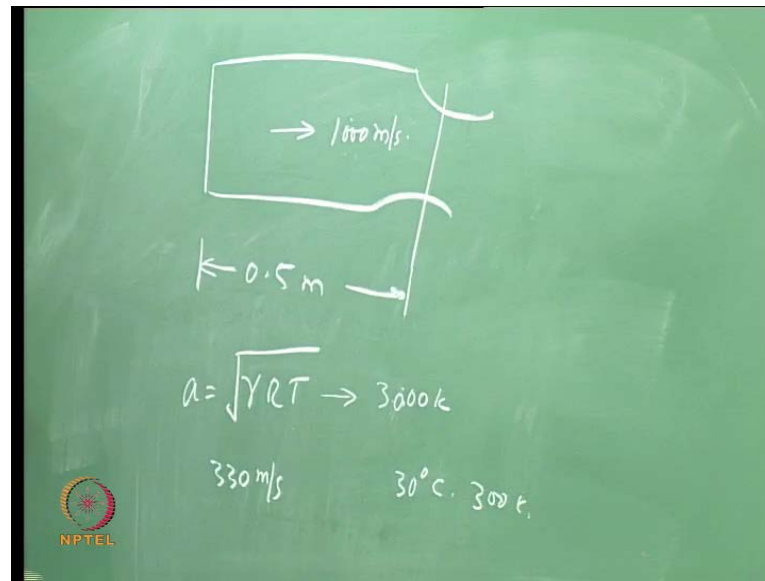 → 1000 m/s.
← 0.5 m →
a = √γRT → 3000k
330 m/s 30°C. 300k.
NPTEL